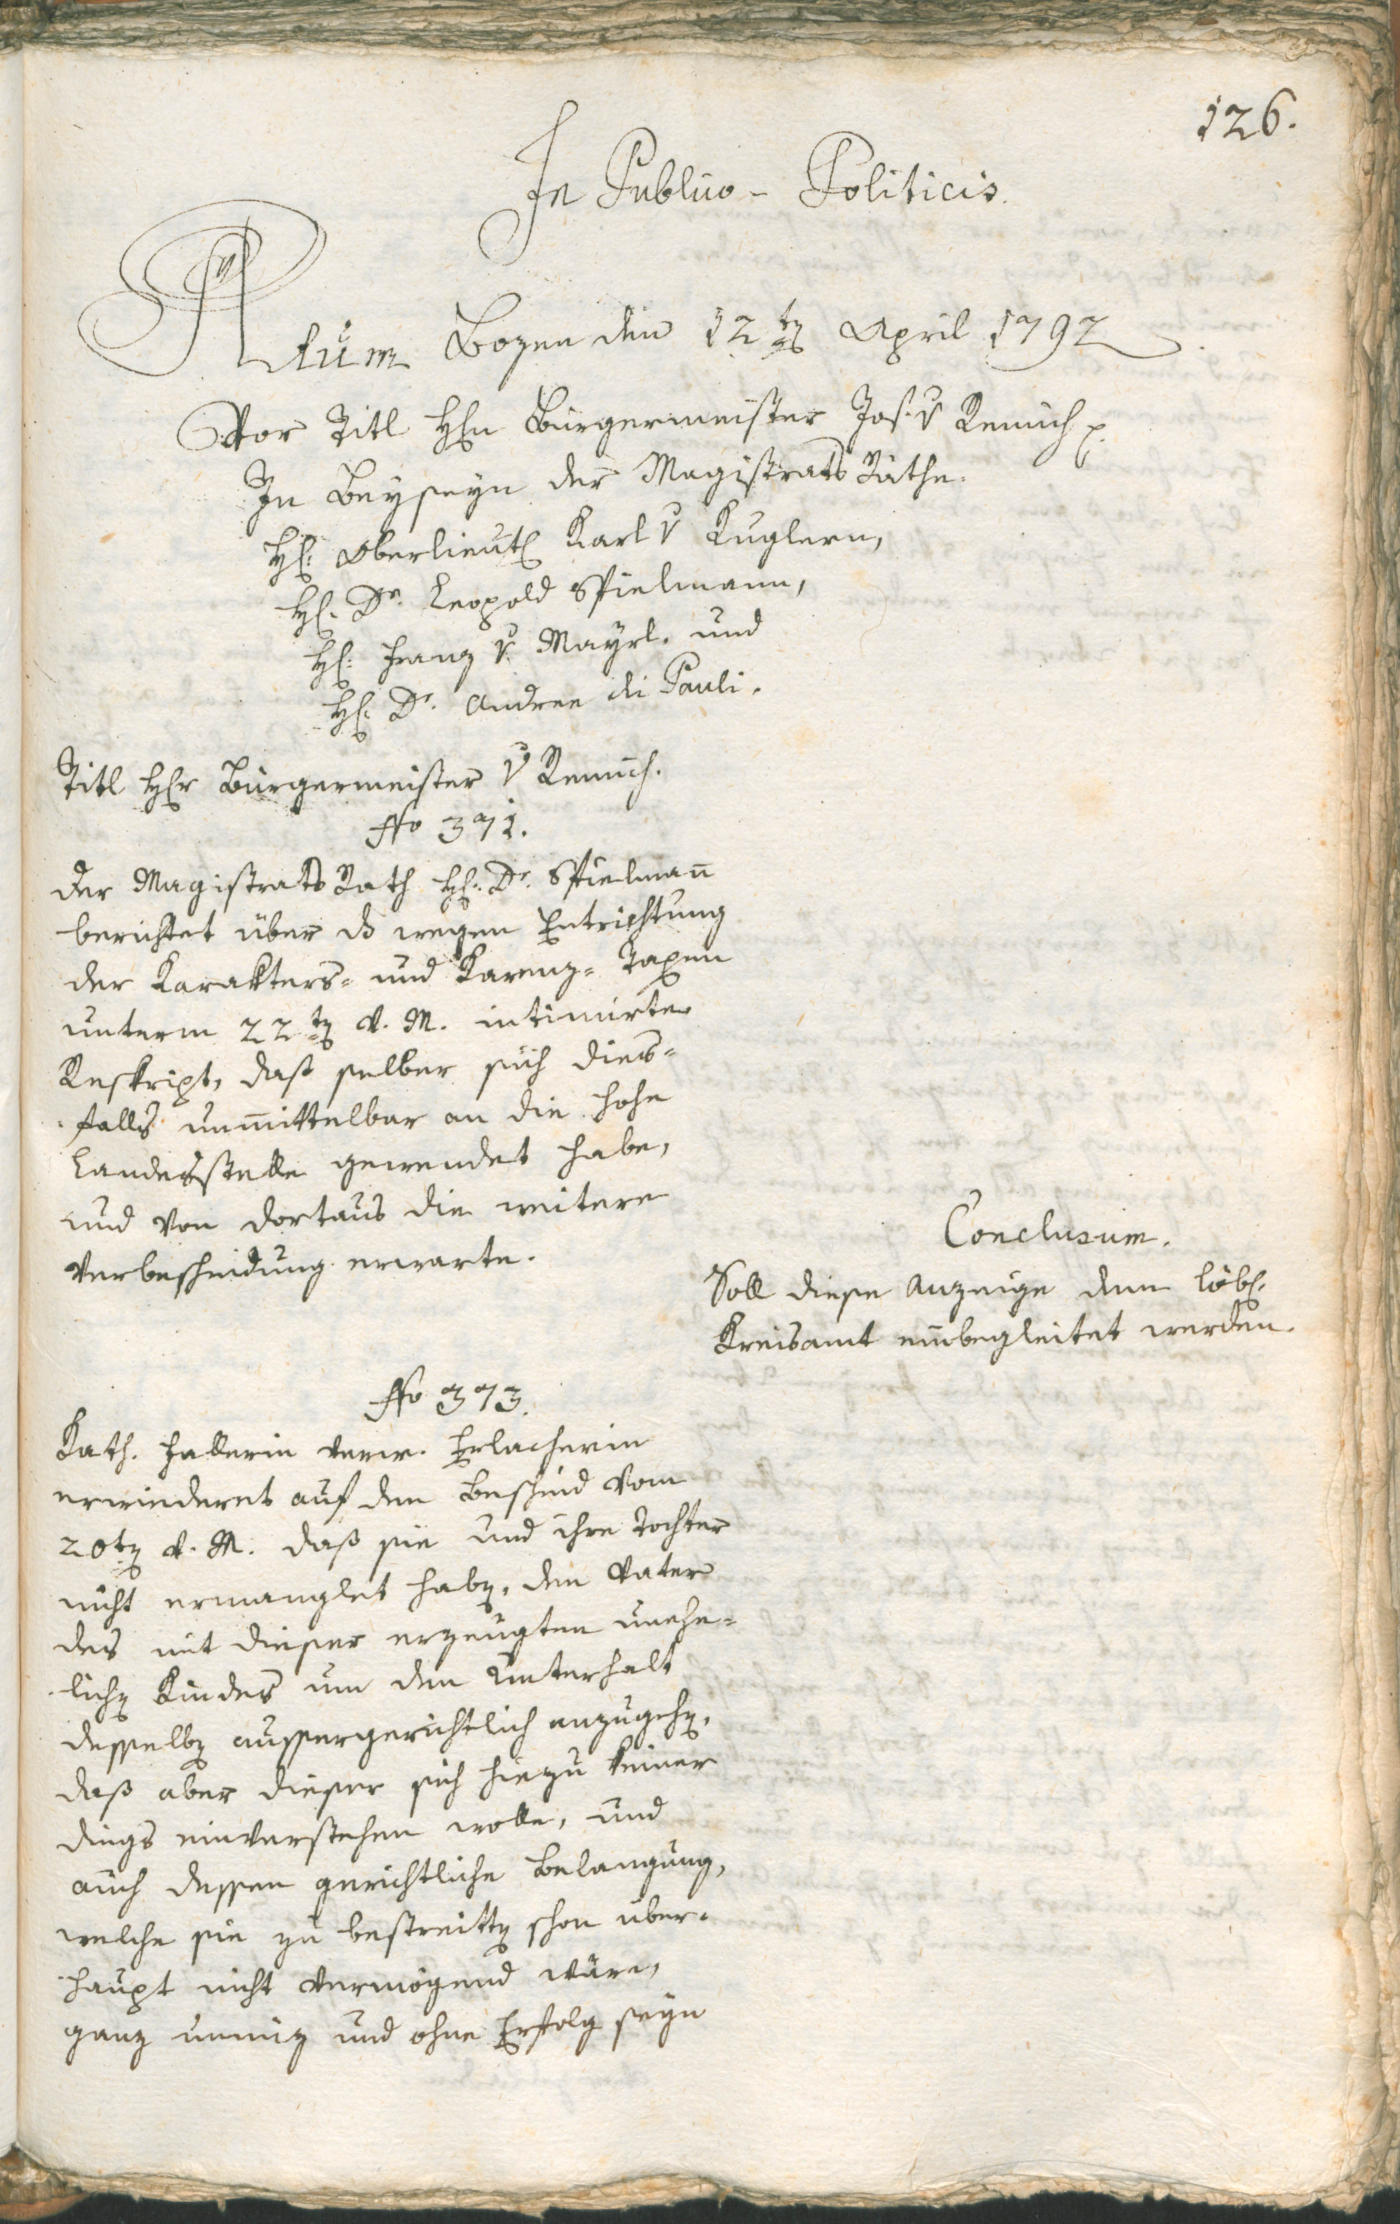 126.
In Publico - Politicis.
Actum Bozen den 12ten April 1792
Vor Titl Hhn Bürgermeister Jos. v Remich p.
In Beyseyn der Magistrats Räthe.
H: Oberlieut Karl v Kuglern,
H. Dr. Leopold Spielmann,
H: Franz v. Mayrl. und
H: Dr. Andree di Pauli.
Titl Herr Bürgermeister v Remich.
No 371.
Der Magistrats Rath H: Dr. Spielmañ
berichtet über ds wegen Entrichtung
der Karakters- und Karenz- Taxen
unterm 22ten v. M. intimirte
Reskript, daß selber sich dies-
falls unmittelbar an die hohe
Landesstelle gewendet habe,
und von dortaus die weitere
Verbescheidung erwarte.
Conclusum.
Soll diese Anzeige dem löbl.
Kreisamt einbegleitet werden.
No 373.
Kath. Hallerin verw. Erlacherin
erwiederet auf den Bescheid vom
20ten v. M. daß sie und ihre Tochter
nicht ermanglet haben, den Vater
des mit dieser erzeugten unehe-
lichen Kindes um den Unterhalt
desselben aussergerichtlich anzugehen,
daß aber dieser sich hiezu keiner
dings einverstehen wolle, und
auch dessen gerichtliche Belangung,
welche sie zu bestreitten schon über-
haupt nicht vermögend wäre,
ganz unnüz und ohne Erfolg seyn